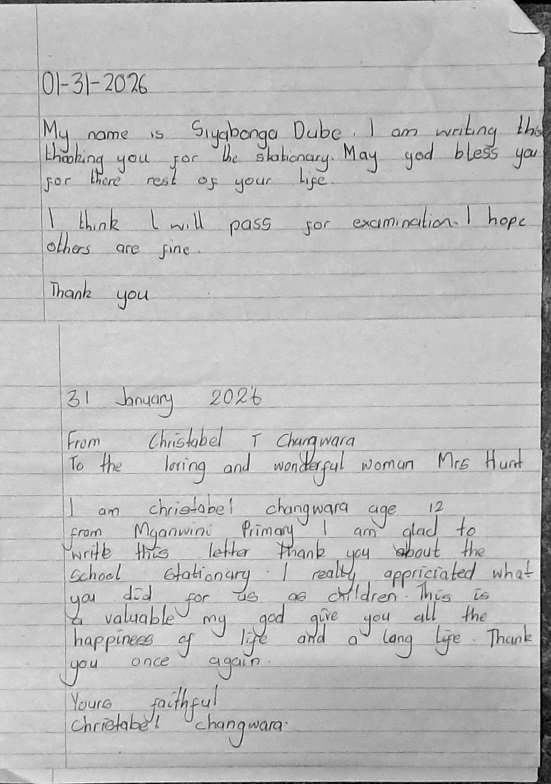 01-31-2026
My name is Siyabonga Dube. I am writing this
thanking you for the stationary. May god bless you
for there rest of your life.
I think I will pass for examination. I hope
others are fine.
Thank you
31 January 2026
From Christabel T Changwara
To the loving and wonderful woman Mrs Hunt
I am christabel changwara age 12
from Mganwini Primary I am glad to
write this letter thank you about the
school stationary. I really appriciated what
you did for us as children. This is
a valuable my god give you all the
happiness of life and a long life. Thank
you once again.
Yours faithful
Christabel changwara.